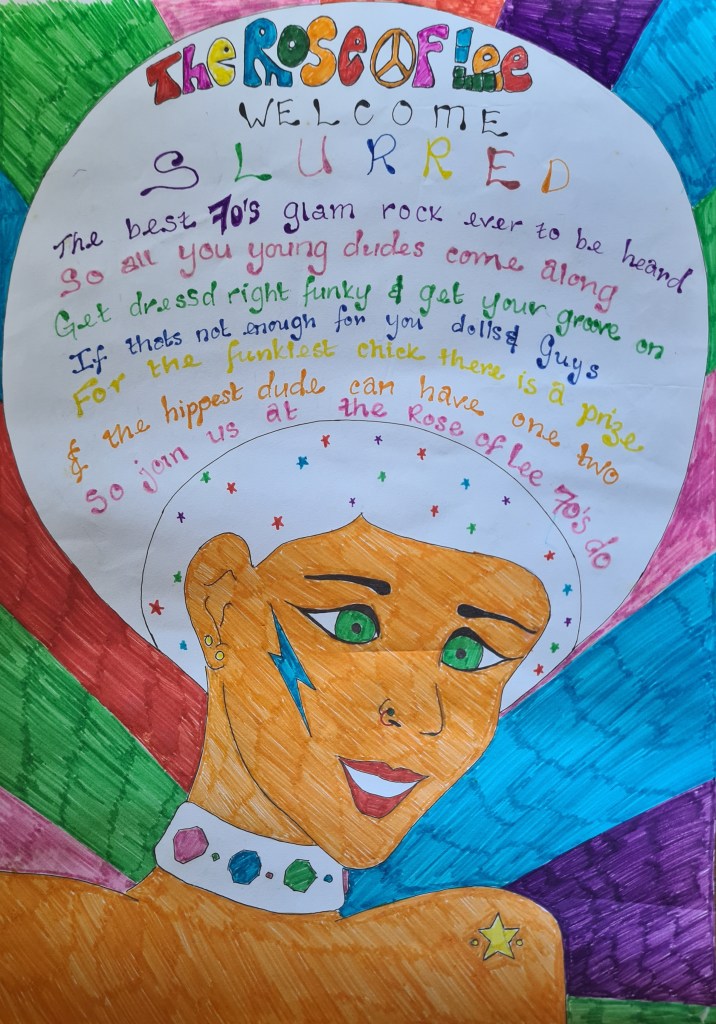 The Rose OF Lee
WELCOME
SLURRED
The best 70's glam rock ever to be heard
So all you young dudes come along
Get dressd right funky & get your groove on
If thats not enough for you dolls & Guys
For the funkiest chick there is a prize
& the hippest dude can have one two
So join us at the Rose of Lee 70's do